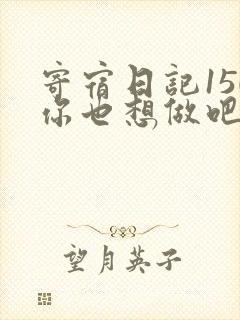 寄宿日記15
你也想做吧
望月英子